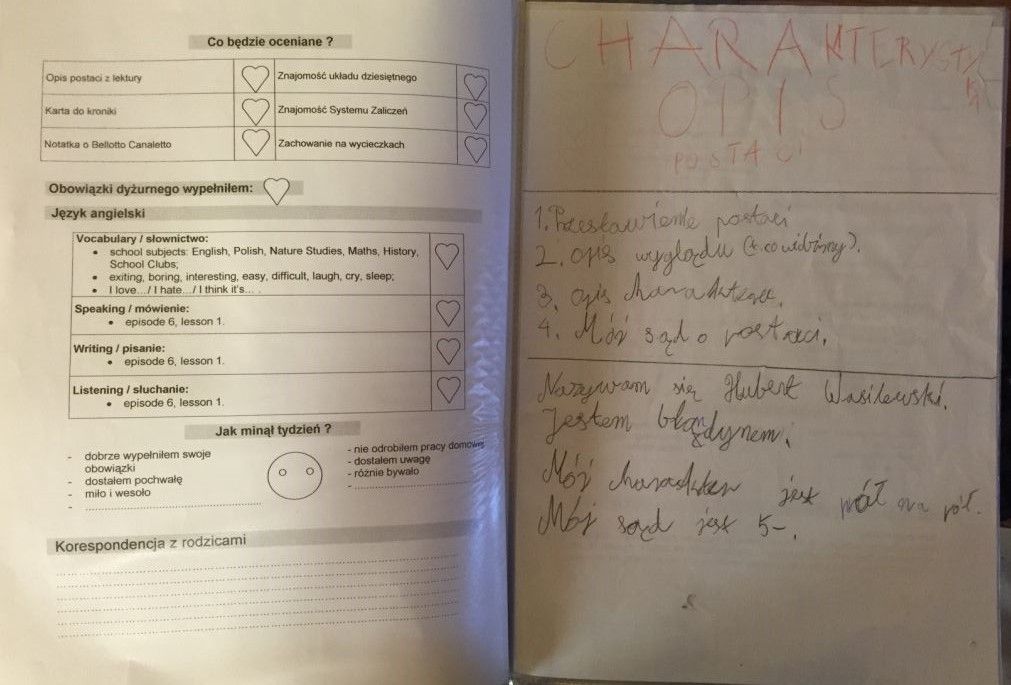 Co będzie oceniane ?
Opis postaci z lektury
Znajomość układu dziesiętnego
Karta do kroniki
Znajomość Systemu Zaliczeń
Notatka o Bellotto Canaletto
Zachowanie na wycieczkach
Obowiązki dyżurnego wypełniłem:
Język angielski
Vocabulary / słownictwo:
• school subjects: English, Polish, Nature Studies, Maths, History,
School Clubs;
• exiting, boring, interesting, easy, difficult, laugh, cry, sleep;
• I love.../ I hate.../ I think it's... .
Speaking / mówienie:
• episode 6, lesson 1.
Writing / pisanie:
• episode 6, lesson 1.
Listening / słuchanie:
• episode 6, lesson 1.
Jak minął tydzień ?
- dobrze wypełniłem swoje
obowiązki
- dostałem pochwałę
- miło i wesoło
-
- nie odrobiłem pracy domowej
- dostałem uwagę
- różnie bywało
-
Korespondencja z rodzicami
CHARAKTERYSTY
KA
OPIS
POSTACI
1. Przestawienie postaci
2. opis wyglądu (t. co widzimy).
3. opis charakteru.
4. Mój sąd o postaci.
Nazywam się Hubert Wasilewski.
Jestem blądynem.
Mój charakter jest pół na pół.
Mój sąd jest 5-.